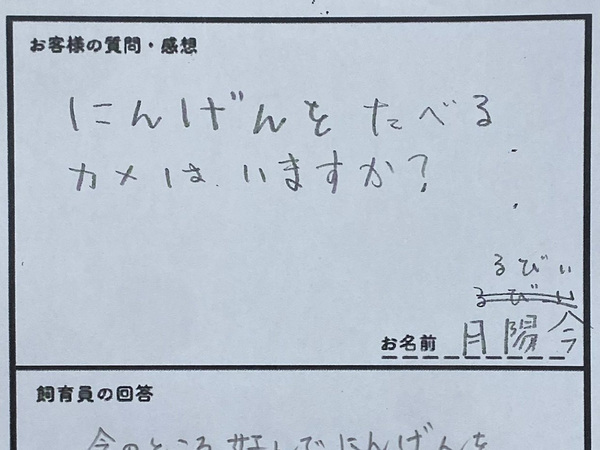 お客様の質問・感想
にんげんを たべる
カメは いますか?
るびぃ
るびぃ
お名前 月陽今
飼育員の回答
今のところ好んでにんげんを